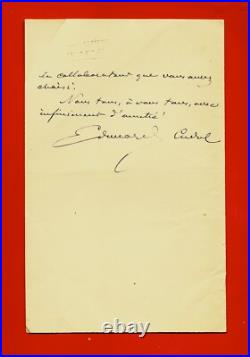 le collaborateur que vous aurez
choisi.
Nous tous, à vous tous, avec
infiniment d'amitié!
Edouard Cadol